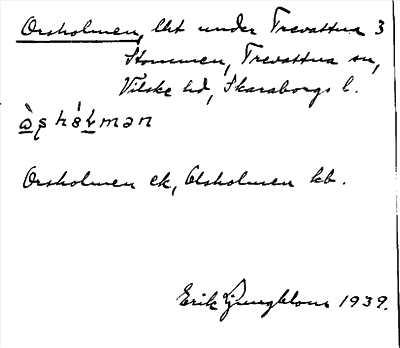 Orsholmen, lht under Trevattna 3
Stommen, Trevattna sn,
Vilske hd, Skaraborgs l.
Orsholmen ek, Olsholmen kb.
Erik Ljungblom 1939.